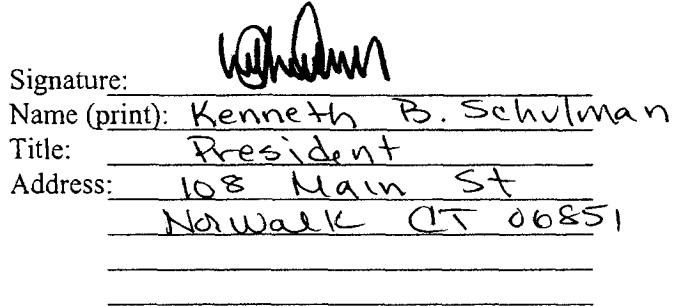 Signature:
Name (print): Kenneth B. Schulman
Title: President
Address: 108 Main St
Norwalk CT 06851